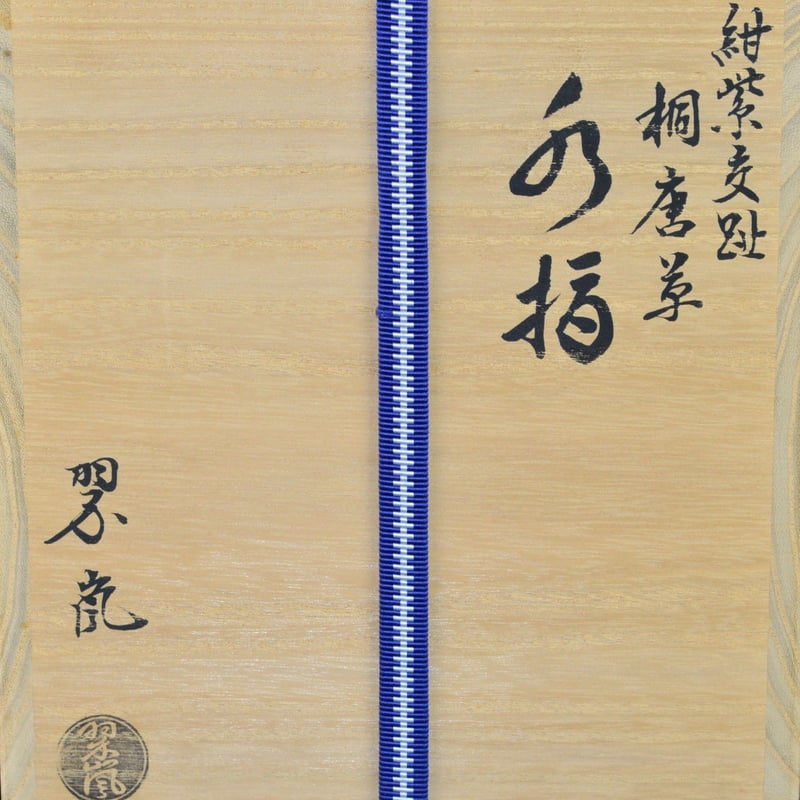 紺紫交趾
桐唐草
水指
翠嵐
翠嵐